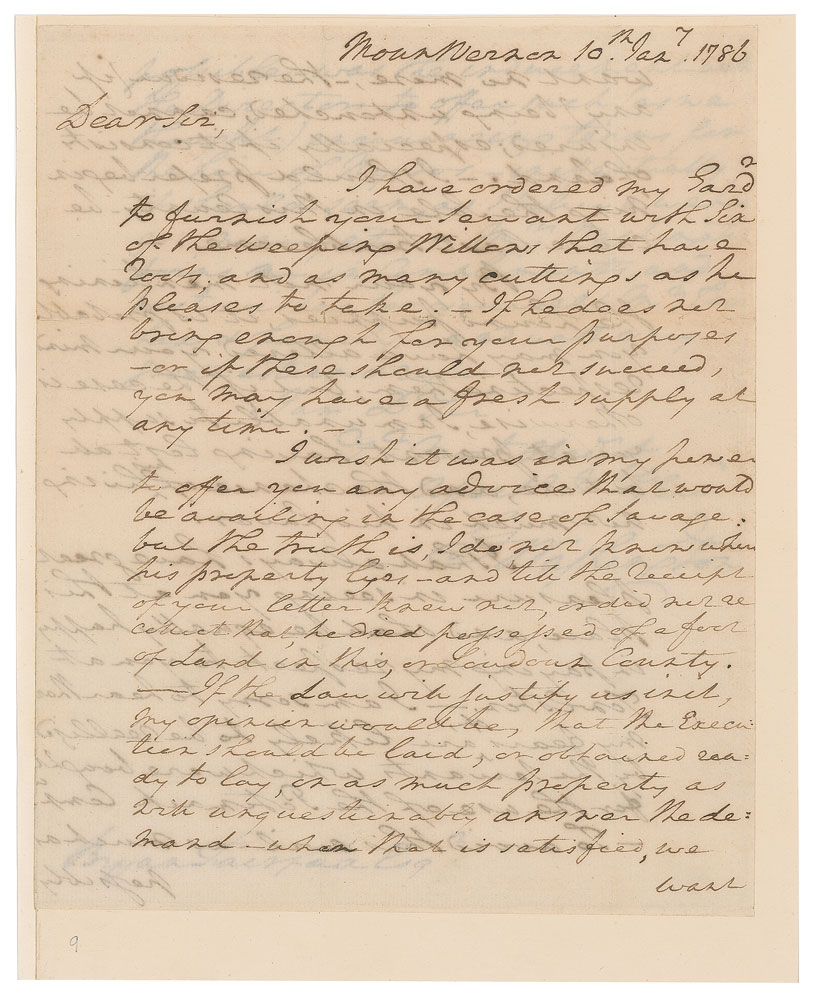 Mount Vernon 10th. Jany. 1786
Dear Sir,
I have ordered my Gardr
to furnish your Servant with Six
of the Weeping Willows that have
Roots, and as many cuttings as he
pleases to take. – If he does not
bring enough for your purposes
– or if these should not succeed,
you may have a fresh supply at
any time. –
I wish it was in my power
to offer you any advice that would
be availing in the case of Savage.
but the truth is, I do not know where
his property lyes – and till the receipt
of your letter knew not, or did not re
collect that, he died possessed of a foot
of Land in this, or Loudoun County.
– If the Law will justify us in it,
my opinion would be, that the Execu:
tion should be laid, or obtained rea:
dy to lay, on as much property as
will unquestionably answer the de:
mand – when that is satisfied, we
want
9